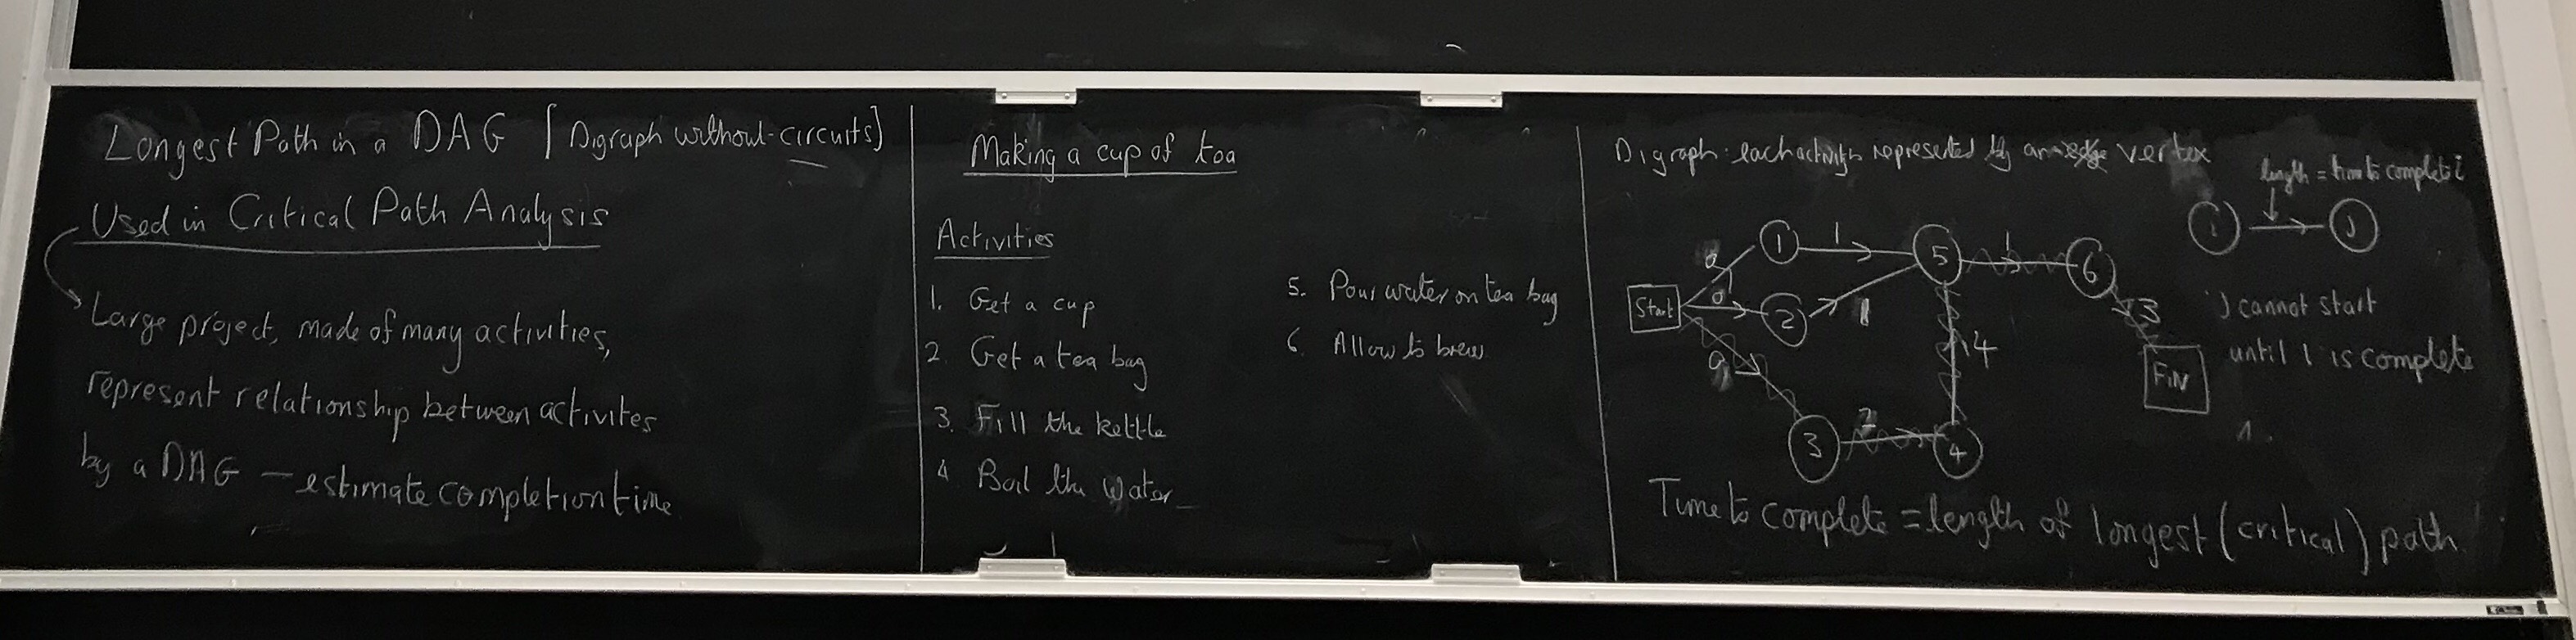 Longest Path in a DAG [Digraph without circuits]
Used in Critical Path Analysis
Large project, made of many activities,
represent relationship between activites
by a DAG – estimate completion time
Making a cup of tea
Activities
1. Get a cup
2. Get a tea bag
3. Fill the kettle
4 Boil the water
5. Pour water on tea bag
6. Allow to brew
Digraph: each activity represented by an edge vertex
length = time to complete i
i j
j cannot start
until i is complete
Start 0 1 1 5 1 6
0 2 1
0 3 2 4 4
3 FIN
Time to complete = length of longest (critical) path